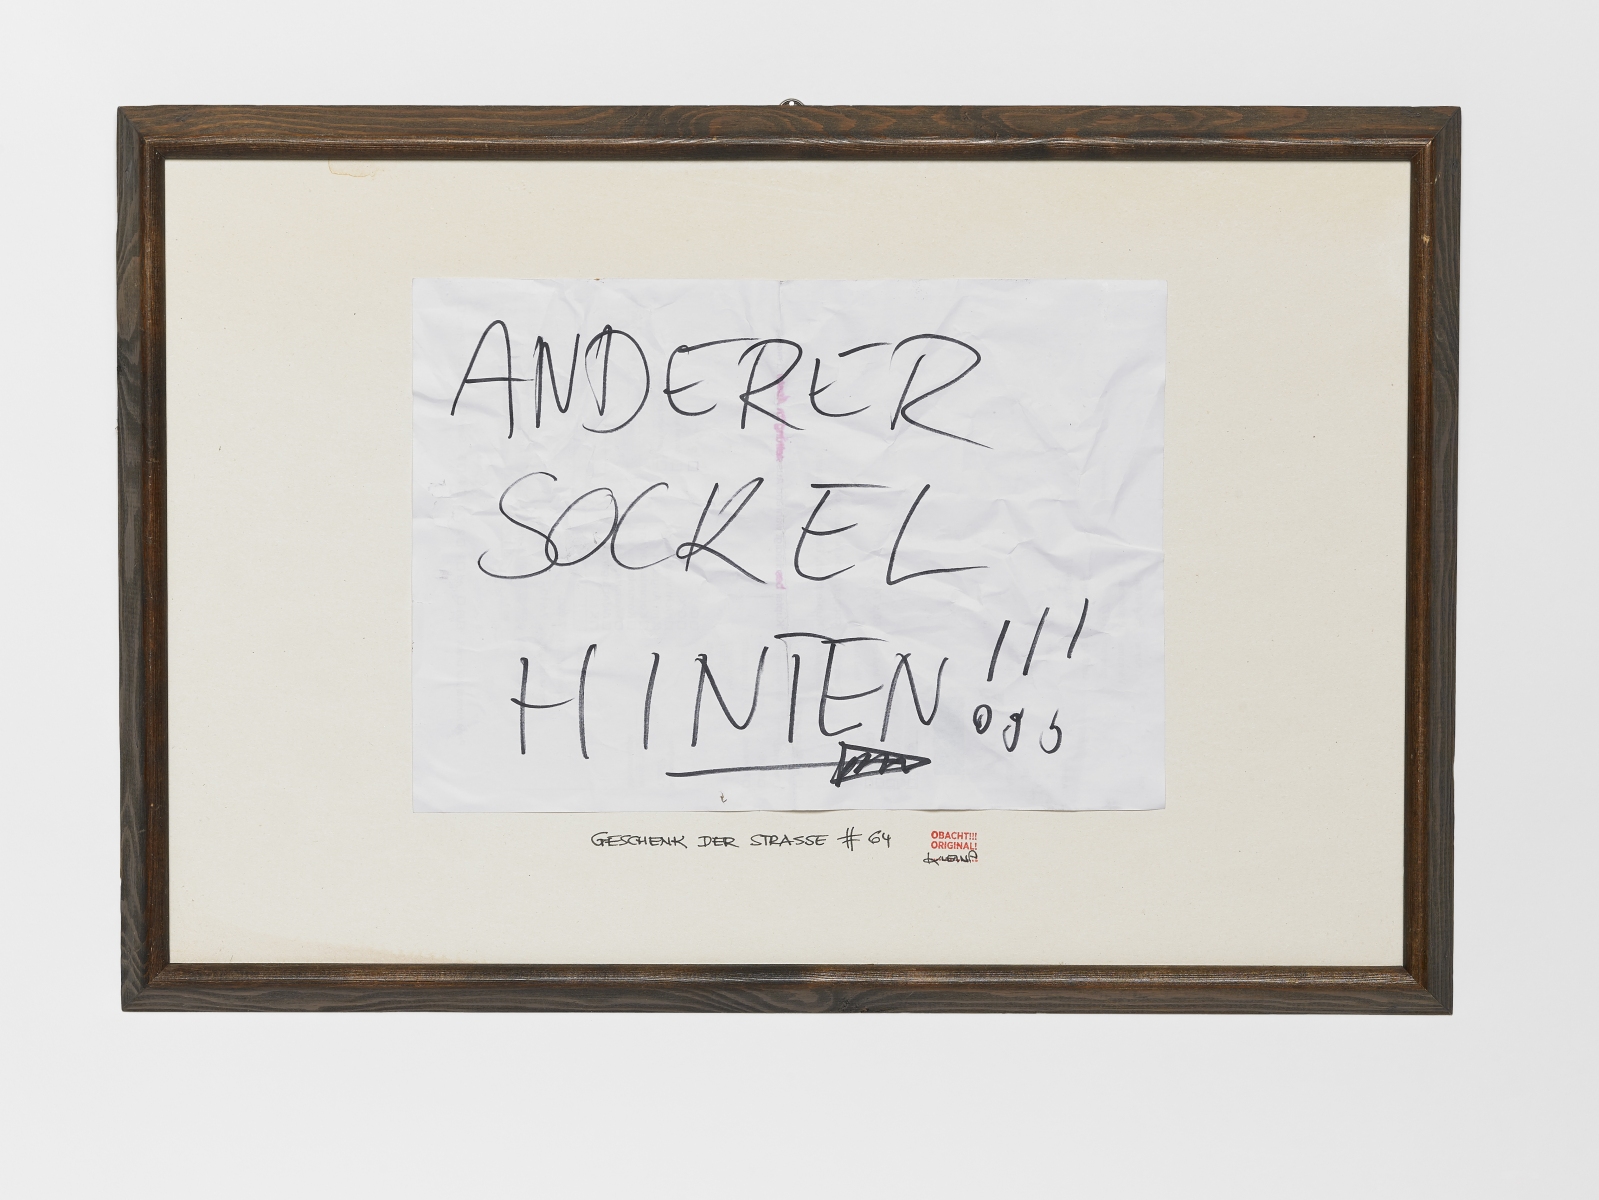 ANDERER
SOCKEL
HINTEN!!!
GESCHENK DER STRASSE # 64
OBACHT!!!
ORIGINAL!